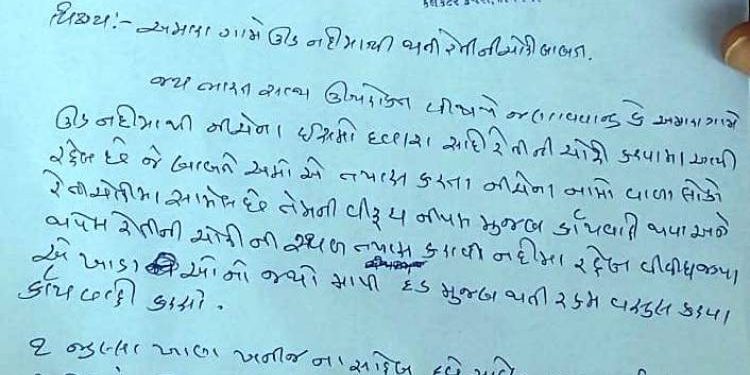 કલેક્ટર
વિષય:- અમરા ગામે ઉંડ નદીમાથી થતી રેતીની ચોરી બાબત.
જય ભારત સાથ ઉપરોક્ત વીષયે જણાવવાનુ કે અમરા ગામે
ઉંડ નદીમાથી નીચેના ઈસમો દ્વારા સાદી રેતીની ચોરી કરવામા આવી
રહેલ છે જે બાબતે અમો એ તપાસ કરતા નીચેના નામો વાળા લોકો
રેતીચોરીમા સામેલ છે તેમની વીરૂધ્ધ નીયમ મુજબ કાર્યવાહી થવા અને
રેતીની ચોરી ની સ્થળ તપાસ કરાવી નદીમા રહેલ વીવીધ જગ્યા
એ ખાડા ઓ નો જથ્થો માપી દંડ મુજબ થતી રકમ વસુલ કરવા
કાર્યવાહી કરશો.
૨ જીલ્લા ખાણ ખનીજ ના સાહેબ